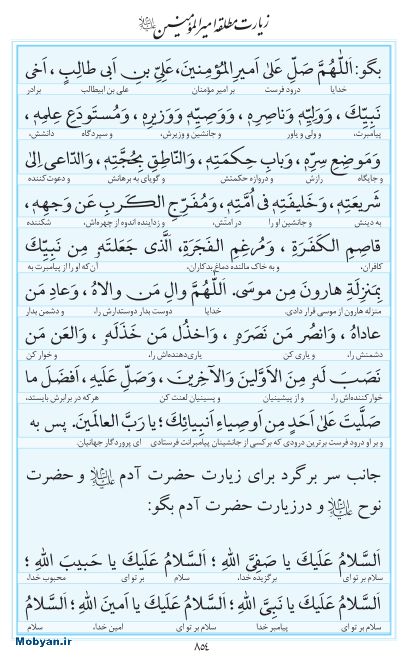 زیارت مطلقه امیرالمؤمنین علیه‌السلام
بگو: اَللّٰهُمَّ صَلِّ عَلىٰ اَميرِالمُؤمِنينَ، عَلِيِّ بنِ اَبى طالِبٍ ، اَخى
خدایا درود فرست بر امیر مؤمنان علی بن ابیطالب برادر
نَبِيِّكَ، وَوَلِيِّهٖ وَناصِرِهٖ، وَوَصِيِّهٖ وَوَزيرِهٖ، وَمُستَودَعِ عِلمِهٖ،
پیامبرت، و ولی و یاور و جانشین و وزیرش، و سپردگاه دانشش،
وَمَوضِعِ سِرِّهٖ، وَبابِ حِكمَتِهٖ، وَالنّاطِقِ بِحُجَّتِهٖ، وَالدّاعى اِلىٰ
و جایگاه رازش و دروازه حکمتش و گویای به برهانش و دعوت‌کننده
شَريعَتِهٖ، وَخَليفَتِهٖ فى اُمَّتِهٖ، وَمُفَرِّجِ الكَربِ عَن وَجهِهٖ،
به دینش و جانشین او را در امتش، و زداینده اندوه از چهره‌اش، شکننده
قاصِمِ الكَفَرَةِ ، وَمُرغِمِ الفَجَرَةِ، اَلَّذى جَعَلتَهٗ مِن نَبِيِّكَ
کافران، و به خاک مالنده دماغ بدکاران، آن‌که او را از پیامبرت به
بِمَنزِلَةِ هارونَ مِن موسىٰ. اَللّٰهُمَّ والِ مَن والاهُ ، وَعادِ مَن
منزله هارون از موسی قرار دادی. خدایا دوست بدار دوستدارش را، و دشمن بدار
عاداهُ ، وَانصُر مَن نَصَرَهٗ ، وَاخذُل مَن خَذَلَهٗ ، وَالعَن مَن
دشمنش را، و یاری کن یاری‌دهنده‌اش را، و خوار کن
نَصَبَ لَهٗ مِنَ الاَوَّلينَ وَالآخِرينَ، وَصَلِّ عَلَيهِ، اَفضَلَ ما
خوارکننده‌اش را، و از پیشینیان و پسینیان لعنت کن هر که در برابرش بایستد،
صَلَّيتَ عَلىٰ اَحَدٍ مِن اَوصِياءِ اَنبِيائِكَ؛ يا رَبَّ العالَمينَ. پس به
و بر او درود فرست برترین درودی که بر کسی از جانشینان پیامبرانت فرستادی ای پروردگار جهانیان.
جانب سر برگرد برای زیارت حضرت آدم علیه‌السلام و حضرت
نوح علیه‌السلام و درزیارت حضرت آدم بگو:
اَلسَّلامُ عَلَيكَ يا صَفِىَّ اللهِ ؛ اَلسَّلامُ عَلَيكَ يا حَبيبَ اللهِ ؛
سلام بر تو ای برگزیده خدا، سلام بر تو ای محبوب خدا،
اَلسَّلامُ عَلَيكَ يا نَبِىَّ اللهِ ؛ اَلسَّلامُ عَلَيكَ يا اَمينَ اللهِ ؛ اَلسَّلامُ
سلام بر تو ای پیامبر خدا سلام بر تو ای امین خدا، سلام
٨٥٤
Mobyan.ir